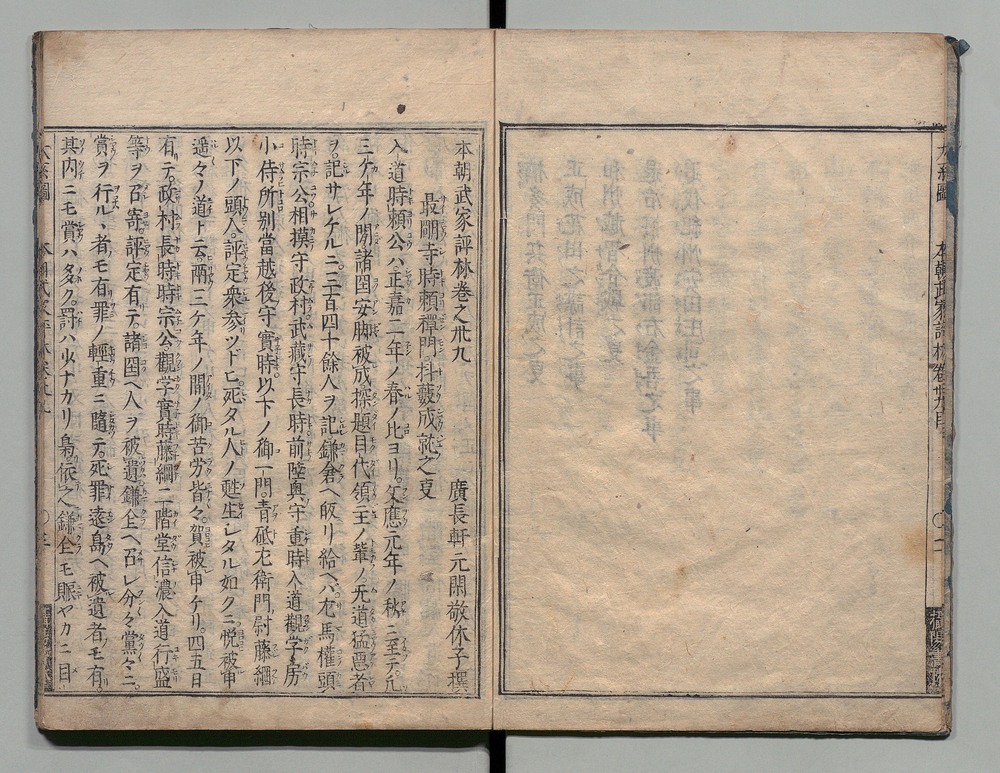 本朝武家評林卷之卅九
廣長軒元閑敬休子撰
最明寺時賴禪門抖擻成就之叓
入道時賴公ハ正嘉二年ノ春ノ比ヨリ。文應元年ノ秋ニ至テ。凡
三ケ年ノ間諸国安脚被成探題目代領主ノ輩ノ无道猛悪者
ヲ。記サレケルニ。三百四十餘人ヲ記鎌倉ヘ皈リ給ヘバ。左馬權頭
時宗公相摸守政村。武藏守長時前陸奥守重時入道觀学房
小侍所別當越後守實時。以下ノ御一門。青砥左衛門尉藤綱
以下ノ頭人。評定衆参ツドヒ。死タル人ノ甦生レタル如クニ悦被申
遥々ノ道ト云兩三ケ年ノ間ノ御苦労皆々。賀被申ケリ。四五日
有テ。政村長時時宗公觀学實時藤綱二階堂信濃入道行盛
等ヲ召寄評定有テ。諸国ヘ人ヲ被遣鎌倉ヘ召レ分々黨々ニ。
賞ヲ行ルヽ者モ有罪ノ輕重ニ隨テ。死罪遠島ヘ被遣者モ有。
其内ニモ賞ハ多ク。罰ハ少ナカリ。依之鎌倉モ賑ヤカニ目
本朝武家評林 卷卅九目